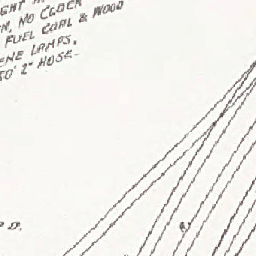 GHT
N, NO CLOCK
FUEL COAL & WOOD
ENE LAMPS,
50' 2" HOSE-
D.